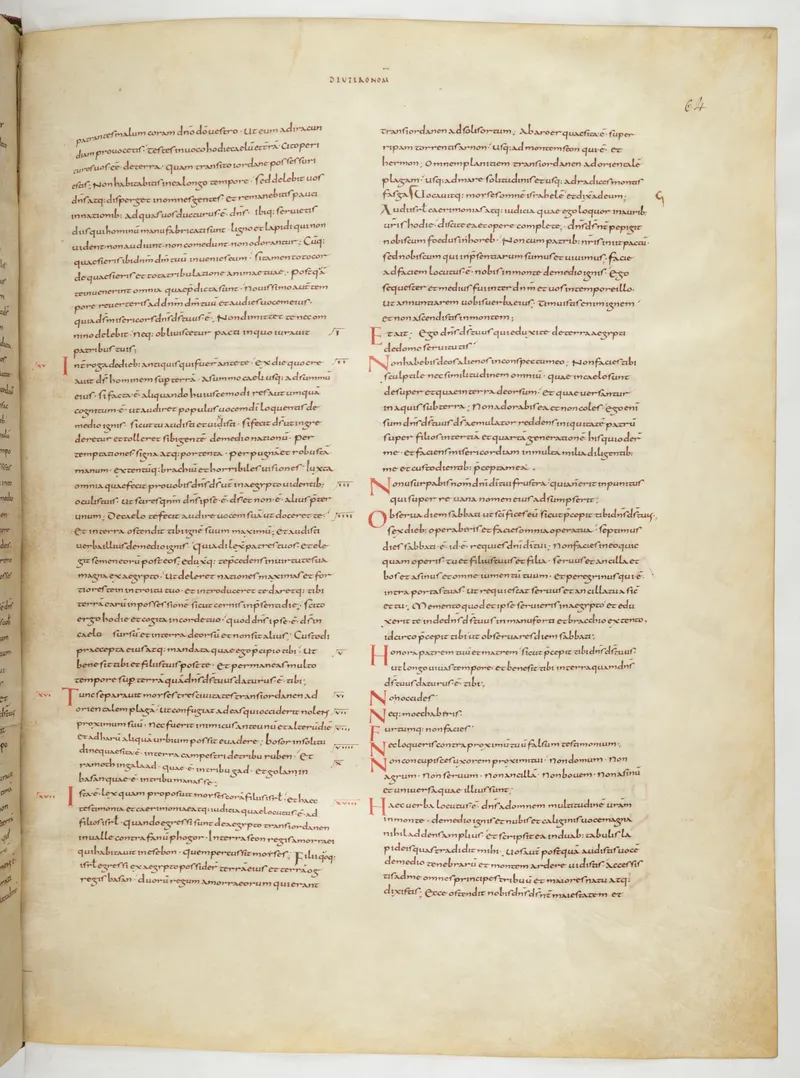 DEUTERONOM̄
64
patrantes malum coram dn̄o dō uestro · Ut eum adiracun
diam prouocetis · testes inuoco hodie caelū et terrā · Cito peri
turos uos eē de terra · quam transito iordane possessuri
estis; Non habitabitis in ea longo tempore · sed delebit uos
dn̄s atq; disperget in omnes gentes · et remanebitis pauci
in nationib; ad quas uos ducturus ē · dn̄s · ibiq; seruietis
diis qui hominū manu fabricati sunt · ligno et lapidi qui non
uident · non audiunt · non comedunt · non odorantur; Cūq;
quaesieris ibi dn̄m dm̄ tuū inuenies eum · si tamen toto cor
de quaesieris et tota tribulatione animae tuae; postq̄ā
te inuenerint omnia quae p̄dicta sunt · Nouissimo autē tem
pore reuerteris ad dn̄m dm̄ tuū et audies uocem eius ·
quia ds̄ misericors dn̄s ds̄ tuus ē; Non dimittet te nec om
nino delebit · neq; obliuiscetur pacti in quo iurauit
patribus tuis;
Interroga de dieb; antiquis qui fuer̄ ante te · Ex die quo cre
auit ds̄ hominem sup̄ terrā · A summo caeli usq; ad summū
eius · si facta ē · aliquando huiuscemodi res aut umquā
cognitum ē · ut audiret populus uocem dī loquentis de
medio ignis · sicut tu audisti et uidisti · si fecit ds̄ ut ingre
deretur et tolleret sibi gentē · de medio nationū · per
temptationes signa atq; portenta · per pugnā et robustā
manum · extentūq; brachiū et horribiles uisiones · Iuxta
omnia quae fecit pro uobis dn̄s ds̄ ūr in aegypto uidentib;
oculis tuis · ut scires qm̄ dn̄s ipse ē · ds̄ et non ē · alius p̄ter
unum; De caelo te fecit audire uocem suā ut doceret te ·
Et in terra ostendit tibi ignē suum maximū · et audisti
uerba illius de medio ignis · Quia dilex̄ patres tuos · et ele
git semen eorū post eos · eduxq; te p̄cedens in uirtute sua
magna ex aegypto · Ut deleret nationes maximas et for
tiores te in introitu tuo · et introduceret te daretq; tibi
terrā earū in possessione sicut cernis in p̄senti die · scito
ergo hodie et cogita in corde tuo · quod dn̄s ipse ē · ds̄ in
caelo sursū et in terra deorsū et non sit alius; Custodi
praecepta eius atq; mandata quae ego p̄cipio tibi · Ut
bene sit tibi et filiis tuis post te · Et permaneas multo
tempore sup̄ terrā quā dn̄s ds̄ tuus daturus ē tibi;
Tunc separauit moyses tres ciuitates trans iordanen ad
orientalem plagā · Ut confugiat ad eas qui occiderit nolens
proximum suū · nec fuerit inimicus ante unū et alterū diē
et ad harū aliquā urbium possit euadere; bosor in solitu
dine quae sita ē · in terra campestri de tribu ruben · Et
ramoth in galaad · quae ē · in tribu gad · et golam in
basan quae ē · in tribu manasse;
Ista ē lex quam proposuit moyses corā filiis isrl̄ · et haec
testimonia et caerimoniae atq; iudicia quae locutus ē ad
filios isrl̄ · quando egressi sunt de aegypto trans iordanen
in ualle contra fanū phogor · In terra seon regis amorraei
qui habitauit in esebon · quem percussit moyses; Filii q̄oq;
isrl̄ egressi ex aegypto possider̄ terrā eius et terrā og
regis basan · duorū regum amorraeorum qui erant
trans iordanen ad solis ortum; Ab aroer quae sita ē · super
ripam torrentis arnon · usq; ad montem seon qui ē · et
hermon; Omnem planitiem trans iordanen ad orientalē
plagam · usq; ad mare solitudinis et usq; ad radices montis
fasga; Uocauitq; moyses omnē israhelē et dixit ad eum;
Audi isrl̄ caerimonias atq; iudicia quae ego loquor in aurib;
ūris hodie · discite ea et opere complete; dn̄s ds̄ nr̄ pepigit
nobiscum foedus in horeb · Non cum patrib; nr̄is init pactū ·
sed nobiscum qui in p̄sentiarum sumus et uiuimus; facie
ad faciem locutus ē · nobis in monte de medio ignis · Ego
sequester et medius fui inter dn̄m et uos in tempore illo ·
Ut annuntiarem uobis uerba eius; Timuistis enim ignem
et non ascendistis in montem;
Et ait; Ego dn̄s ds̄ tuus qui eduxi te de terra aegypti
de domo seruitutis
Non habebis deos alienos in conspectu meo; Non facies tibi
sculptile nec similitudinem omniū · quae in caelo sunt
desuper et quae in terra deorsum · et quae uersantur
in aquis sub terra; Non adorabis ea et non coles · ego enī
sum dn̄s ds̄ tuus ds̄ aemulator reddens iniquitatē patrū
super filios in tertia et quarta generatione his qui oder̄
me · et faciens misericordiam in multa milia diligentib;
me et custodientib; p̄cepta mea ·
Non usurpabis nom̄ dn̄i dī tui frustra · quia n̄ erit inpunitus
qui super re uana nomen eius adsumpserit;
Obserua diem sabbati ut sc̄ifices eū sicut p̄cepit tibi dn̄s ds̄ tuus;
sex dieb; operaberis et facies omnia opera tua · septimus
dies sabbati ē · id ē · requies dn̄i dī tui; non facies in eo quic
quam operis · tu et filius tuus et filia · seruus et ancilla et
bos et asinus et omne iumentū tuum · et peregrinus qui ē
intra portas tuas · ut requiescat seruus et ancilla tua sic
et tu; Memento quod et ipse seruieris in aegypto et edu
xerit te inde dn̄s ds̄ tuus in manu forti et brachio extento;
idcirco p̄cepit tibi ut obseruares diem sabbati;
Honora patrem tuū et matrem sicut p̄cepit tibi dn̄s ds̄ tuus ·
ut longo uiuas tempore · et bene sit tibi in terra quam dn̄s
ds̄ tuus daturus ē tibi;
Non occides
Neq; moechaberis
Furtumq; non facies
Nec loqueris contra proximū tuū falsum testimonium;
Non concupisces uxorem proximi tui · non domum · non
agrum · non seruum · non ancillā · non bouem · non asinū
et uniuersa quae illius sunt;
Haec uerba locutus ē dn̄s ad omnem multitudinē ur̄am
in monte · de medio ignis et nubis et caliginis uoce magna
nihil addens amplius · et scripsit ea in duab; tabulis la
pideis quas tradidit mihi · Uos aūt postquā audistis uocē
de medio tenebrarū et montem ardere uidistis · Accessis
tis ad me omnes principes tribuū et maiores natu atq;
dixistis; Ecce ostendit nobis dn̄s ds̄ nr̄ maiestatem et